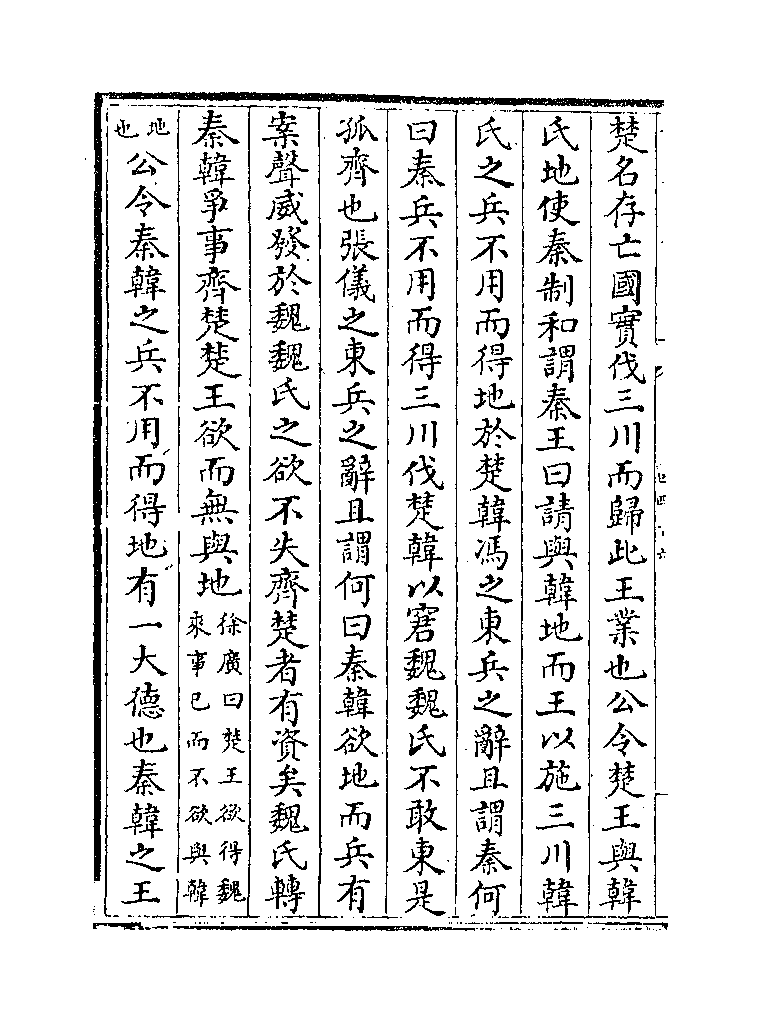 楚名存亡國實伐三川而歸此王業也公令楚王與韓
氏地使秦制和謂秦王曰請與韓地而王以施三川韓
氏之兵不用而得地於楚韓馮之東兵之辭且謂秦何
曰秦兵不用而得三川伐楚韓以窘魏魏氏不敢東是
孤齊也張儀之東兵之辭且謂何曰秦韓欲地而兵有
案聲威發於魏魏氏之欲不失齊楚者有資矣魏氏轉
秦韓爭事齊楚楚王欲而無與地徐廣曰楚王欲得魏來事已而不欲與韓
地也公令秦韓之兵不用而得地有一大德也秦韓之王